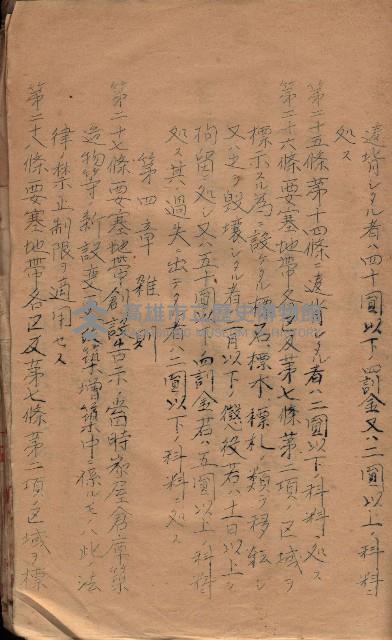 違背シタル者ハ四十圓以下ノ罰金又ハ二圓以上ノ科料ニ
処ス
第二十五條第十四條ニ違背シタル者ハ二圓以下ノ科料ニ処ス
第二十六條要塞地帶各区及第七條第二項ノ区域ヲ
標示スル為ニ設ケタル標石標木標札ノ類ヲ移転シ
又ハ之ヲ毀壊シタル者ハ一月以下ノ懲役若ハ十一日以上ノ
拘留ニ処シ又ハ五十圓以下ノ罰金若ハ五圓以上ノ科料ニ
処ス其ノ過失ニ出デタル者ハ二圓以下ノ科料ニ処ス
第四章 雜則
第二十七條要塞地帶創設告示ノ當時家屋倉庫築
造物等ノ新設変更改築増築中ニ係ルモノハ此ノ法
律ノ禁止制限ヲ適用セス
第二十八條要塞地帶各区及第七條第二項ノ区域ヲ標
高雄市立歷史博物館